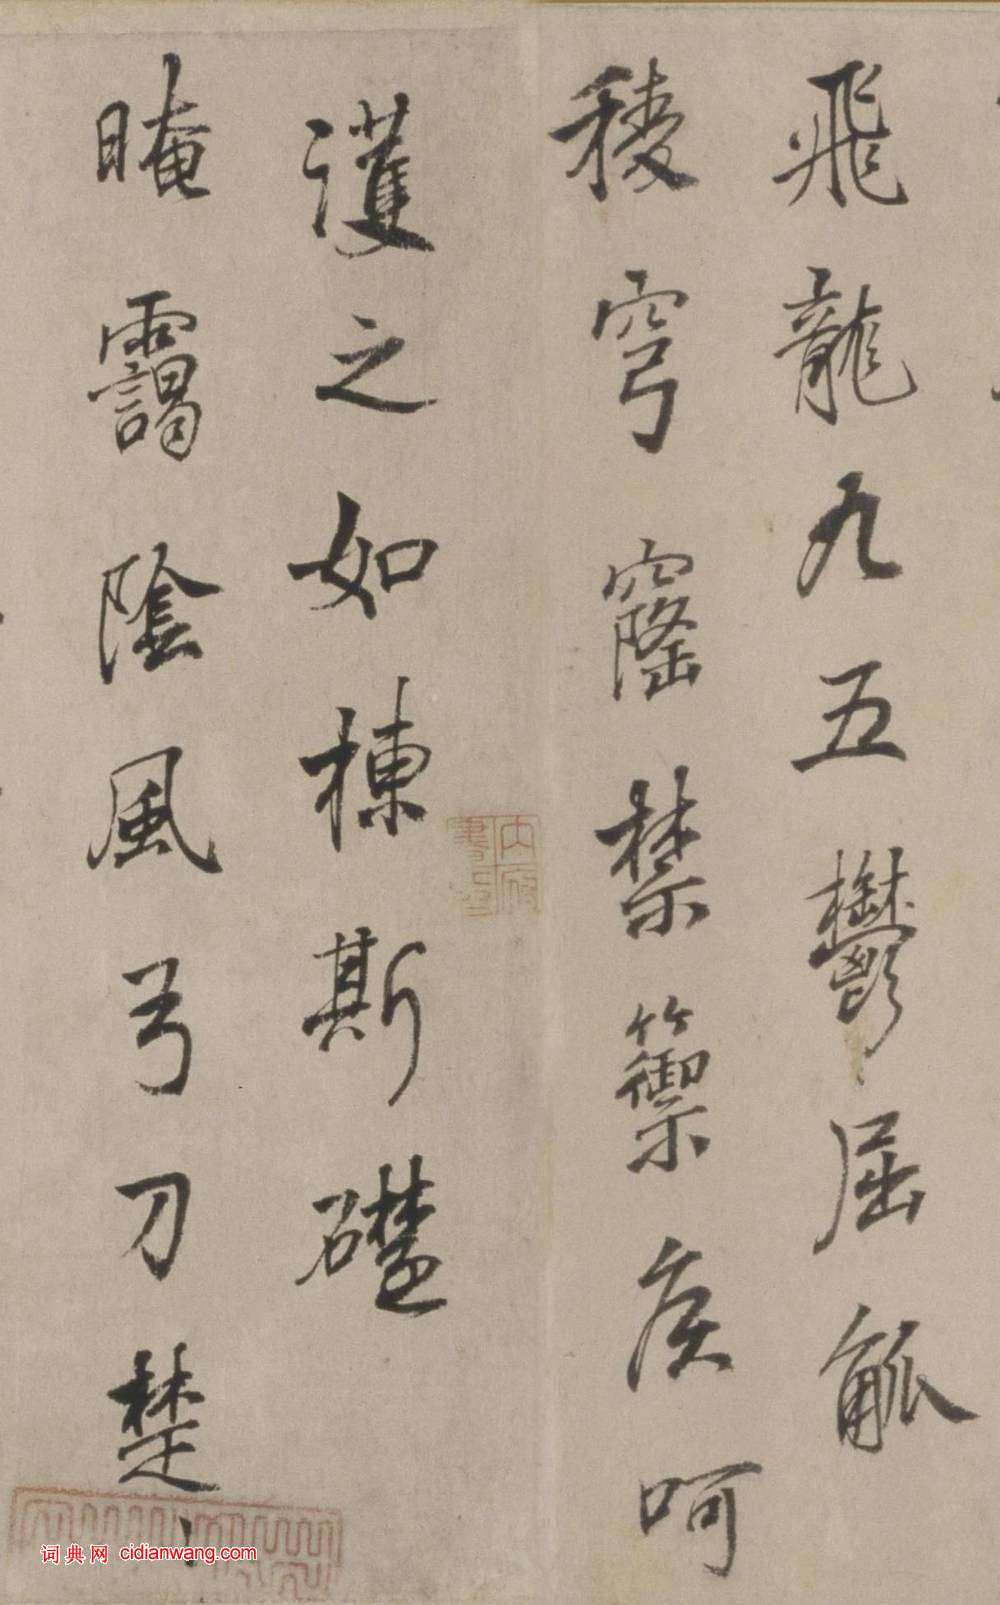 飛龍九五鬱屈觚
稜穹窿禁籞矦呵
護之如棟斯礎
晻靄陰風弓刀楚、
內府書印
词典网 cidianwang.com